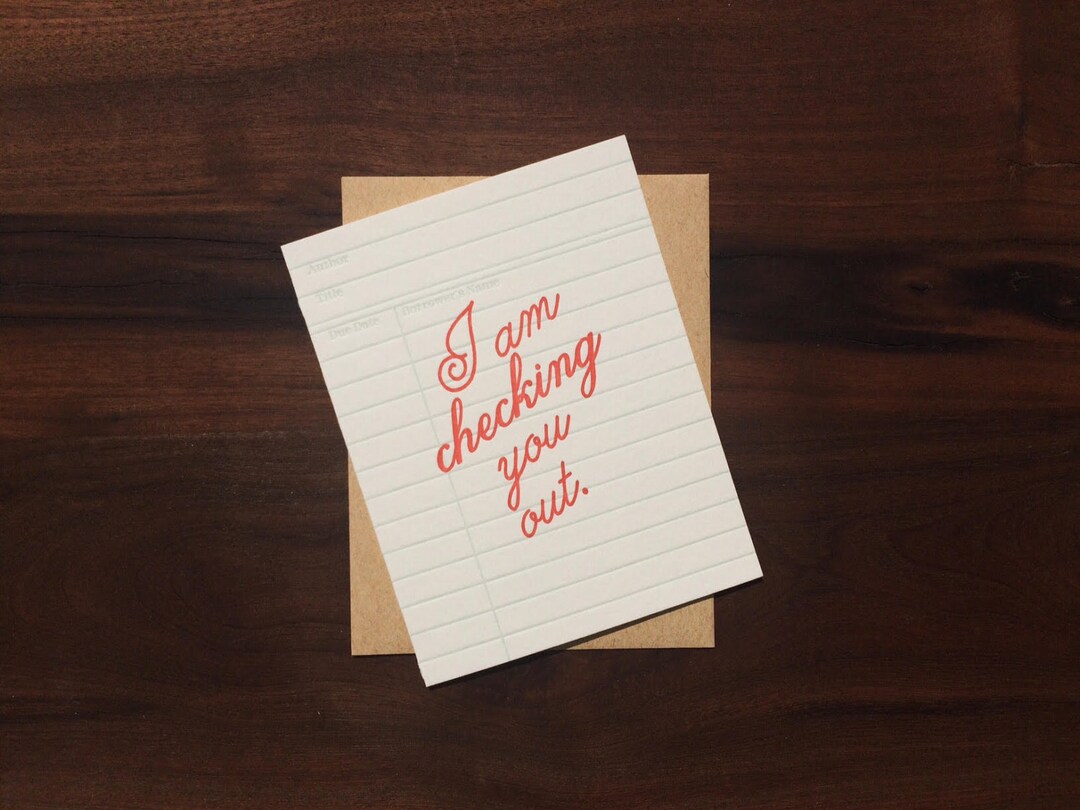 Author
Title
Due Date Borrower's Name
I am
checking
you
out.